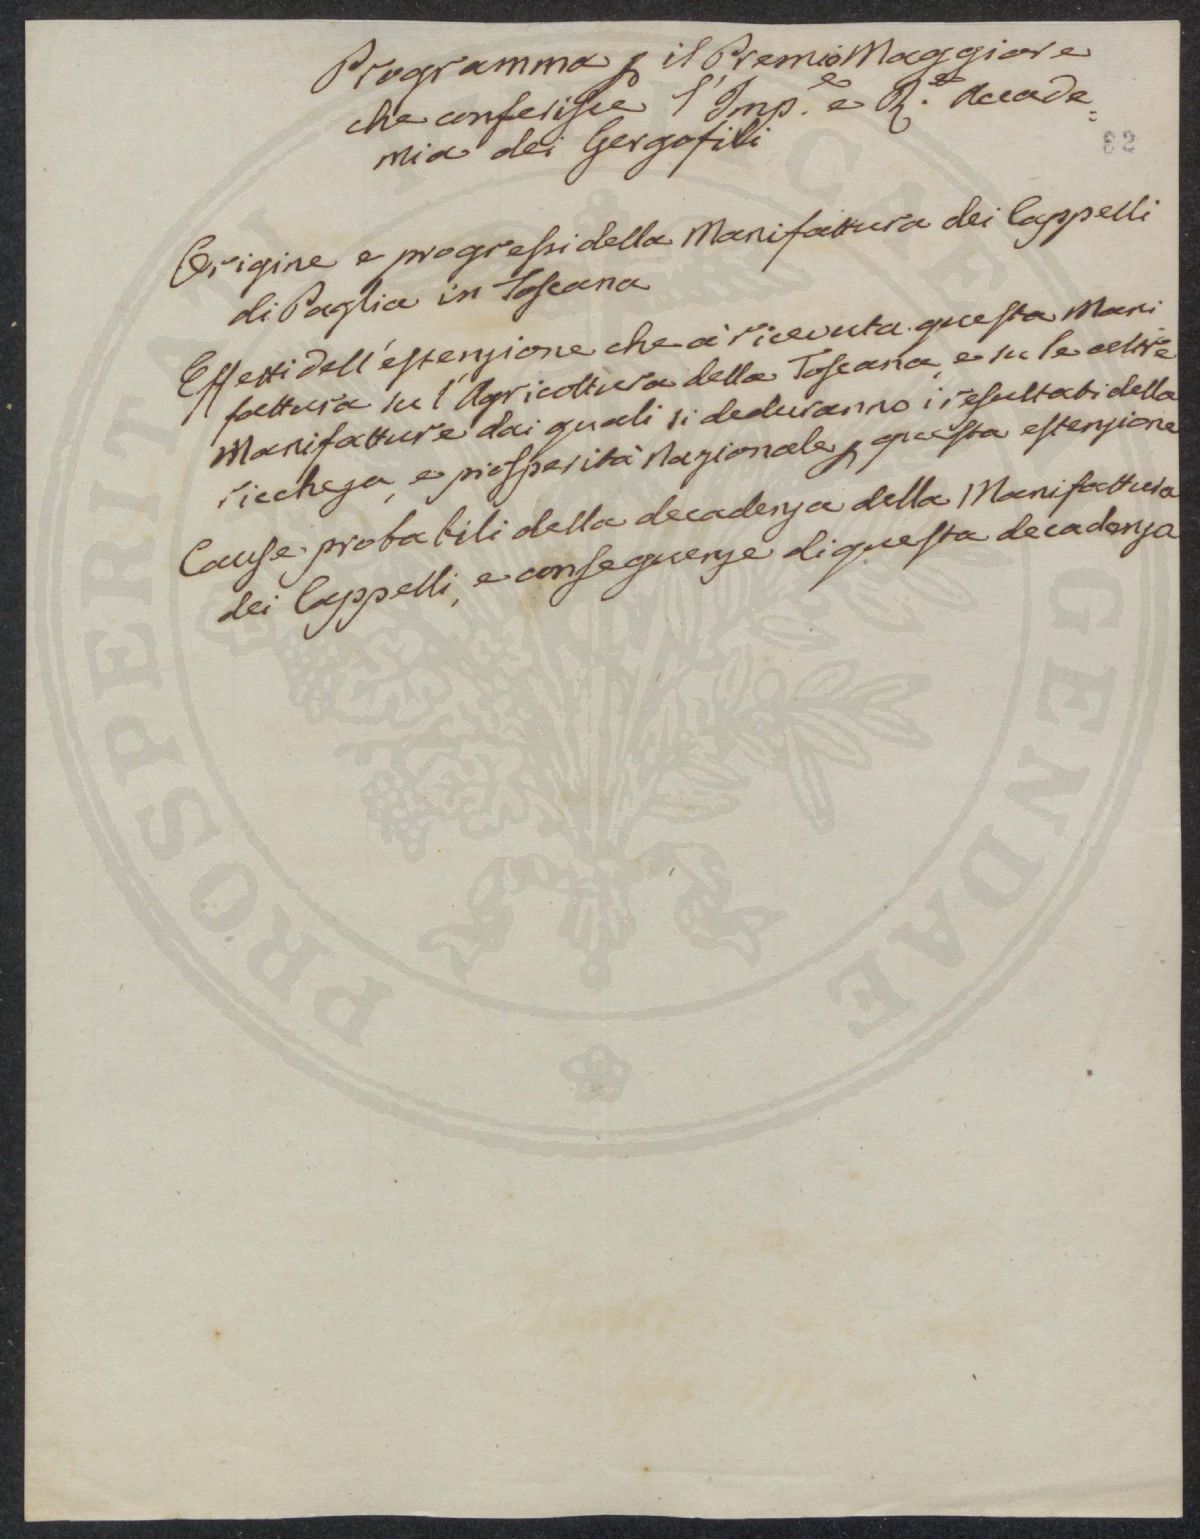 Programma p il Premio Maggiore
che conferisce l'Imp.e e R.e Accade=
mia dei Gergofili
32
Origine e progressi della Manifattura dei Cappelli
di Paglia in Toscana
Effetti dell'estenzione che à ricevuta questa Mani
fattura su l'Agricoltura della Toscana, e su le altre
Manifatture dai quali si deduranno i resultati della
ricchezza, e prosperità Nazionale p questa estenzione
Cause probabili della decadenza della Manifattura
dei Cappelli, e conseguenze di questa decadenza
PROSPERITATI
GENDAE